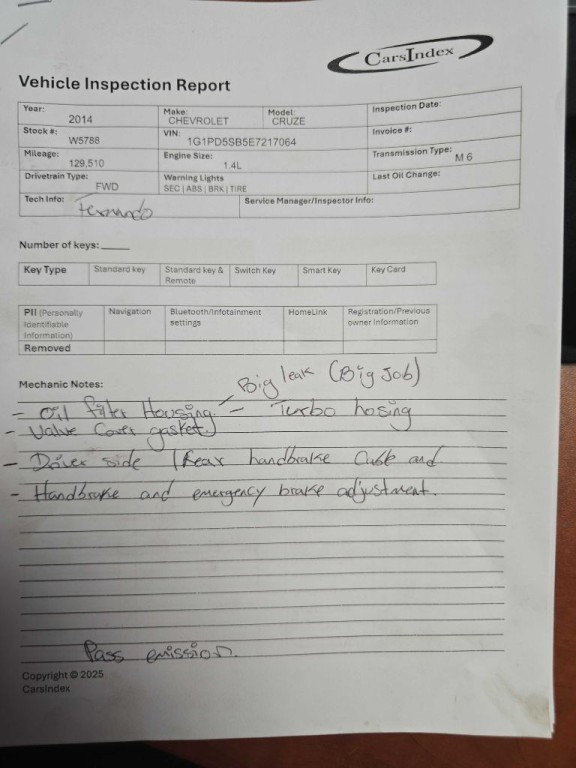 CarsIndex
Vehicle Inspection Report
Year: 2014 Make: CHEVROLET Model: CRUZE Inspection Date:
Stock #: W5788 VIN: 1G1PD5SB5E7217064 Invoice #:
Mileage: 129,510 Engine Size: 1.4L Transmission Type: M 6
Drivetrain Type: FWD Warning Lights SEC | ABS | BRK | TIRE Last Oil Change:
Tech Info: Fernando Service Manager/Inspector Info:
Number of keys:
Key Type Standard key Standard key & Remote Switch Key Smart Key Key Card
PII (Personally Identifiable Information) Navigation Bluetooth/Infotainment settings HomeLink Registration/Previous owner information
Removed
Mechanic Notes:
Big leak (Big Job)
- Oil filter Housing. - Turbo hosing
- Valve Cover gasket
- Driver side / Rear handbrake Cable and
- Handbrake and emergency brake adjustment.
Pass emission.
Copyright © 2025
CarsIndex